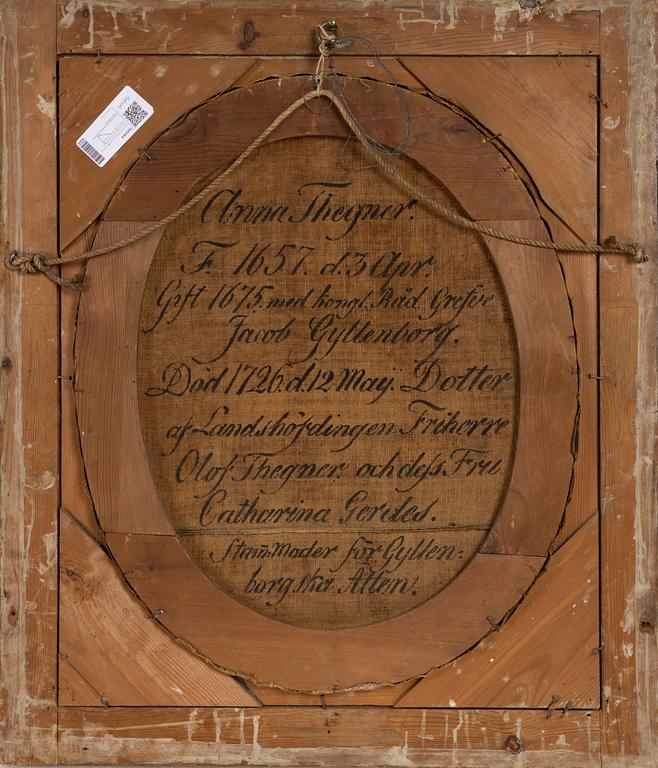 Anna Thegner.
F. 1657. d. 3 Apr.
Gift 1675. med kongl. Råd Grefve
Jacob Gyllenborg.
Död 1726. d. 12 Maij. Dotter
af Landshöfdingen Friherre
Olof Thegner. och dess Fru
Catharina Gerdes.
Stam-Moder för Gyllen-
borgska Ätten.